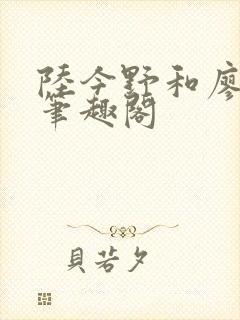 陸今野和廖
筆趣閣
貝若夕